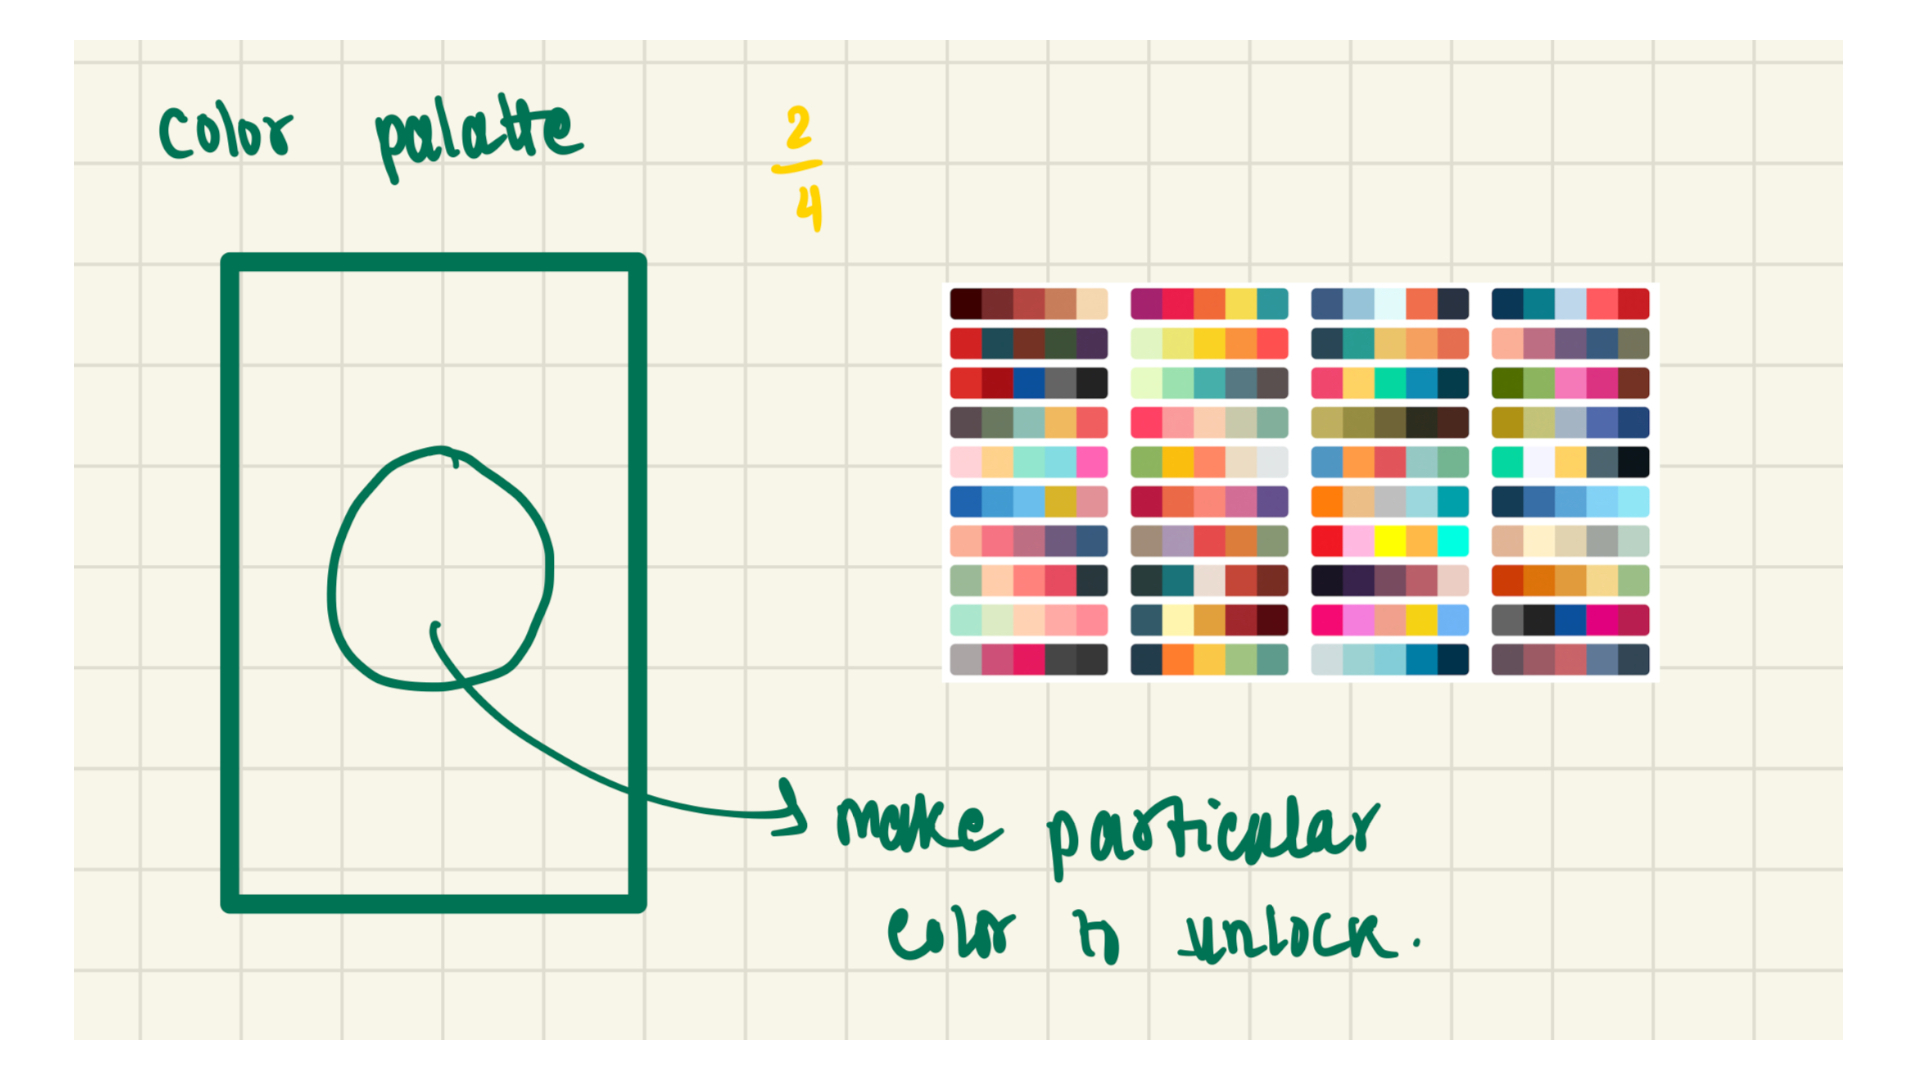 color palatte
2
4
make particular
color to unlock.